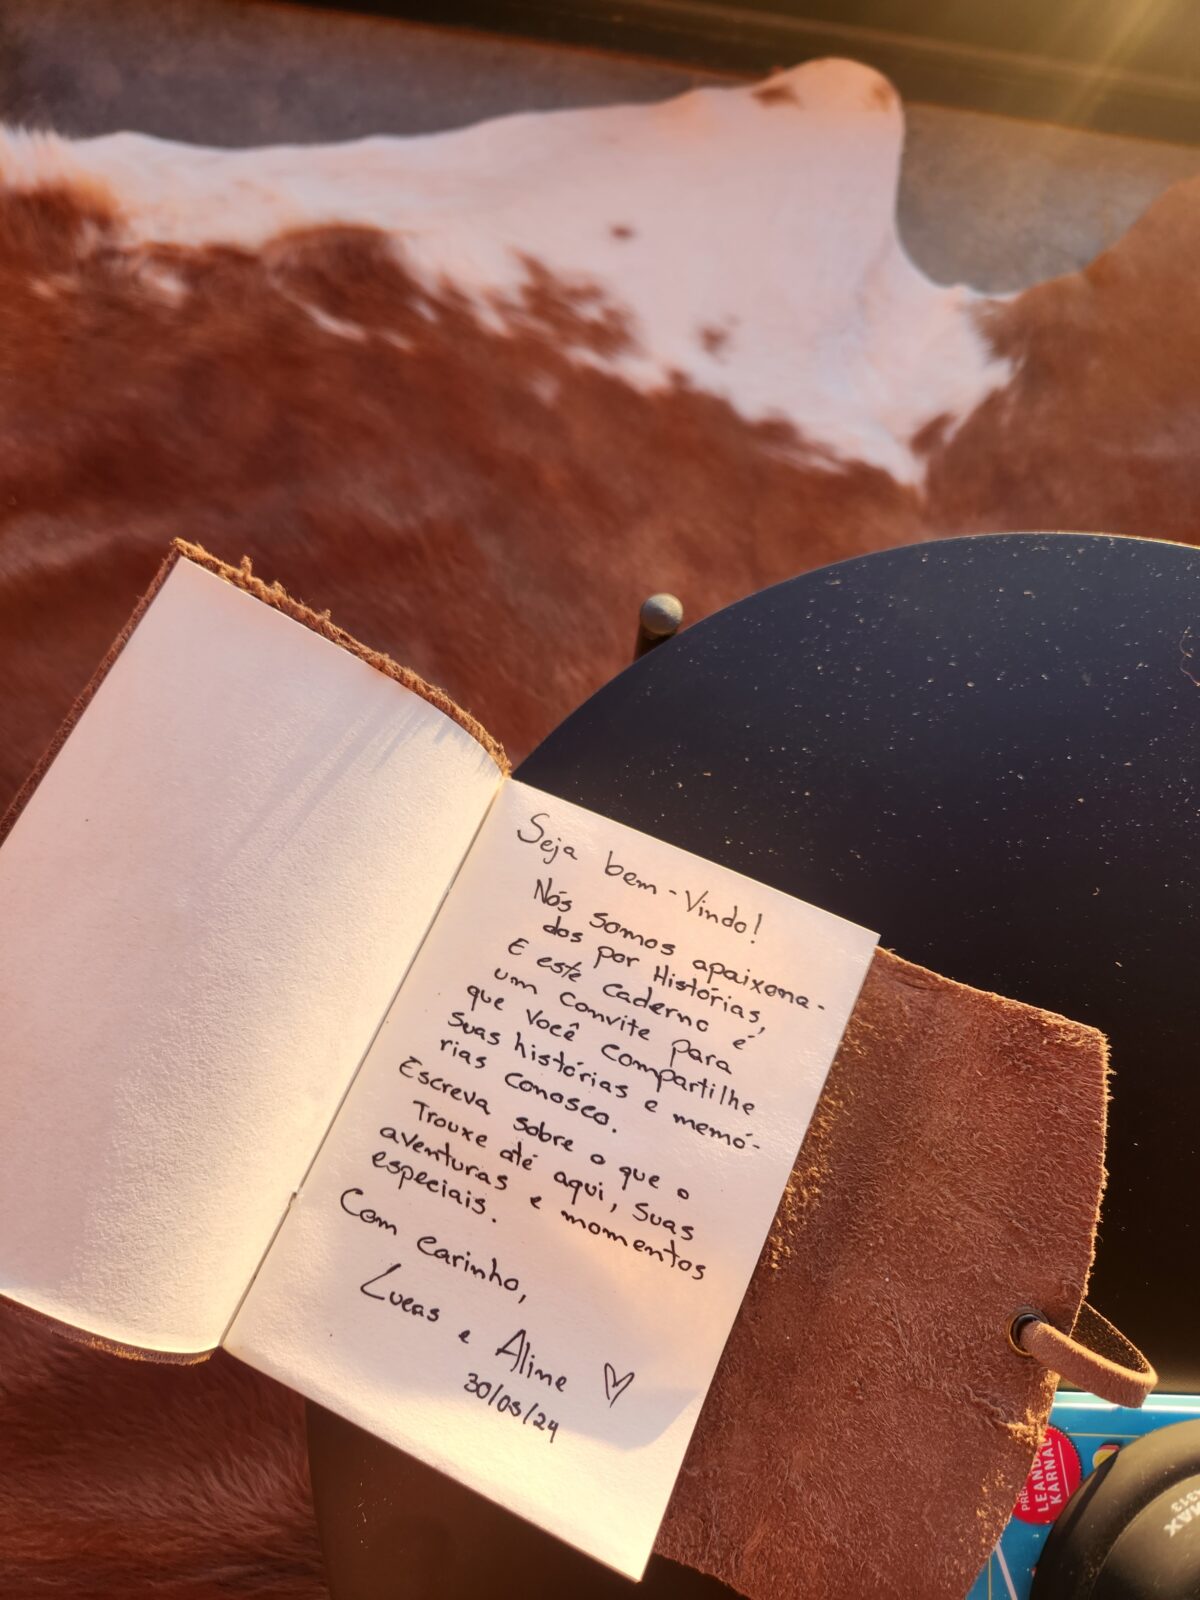 Seja bem-Vindo!
Nós somos apaixona-
dos por Histórias,
E este Caderno é
um convite para
que Você Compartilhe
Suas histórias e memó-
rias Conosco.
Escreva sobre o que o
Trouxe até aqui, Suas
aventuras e momentos
especiais.
Com Carinho,
Lucas e Aline ♡
30/05/24
LEANDRO
KARNAL